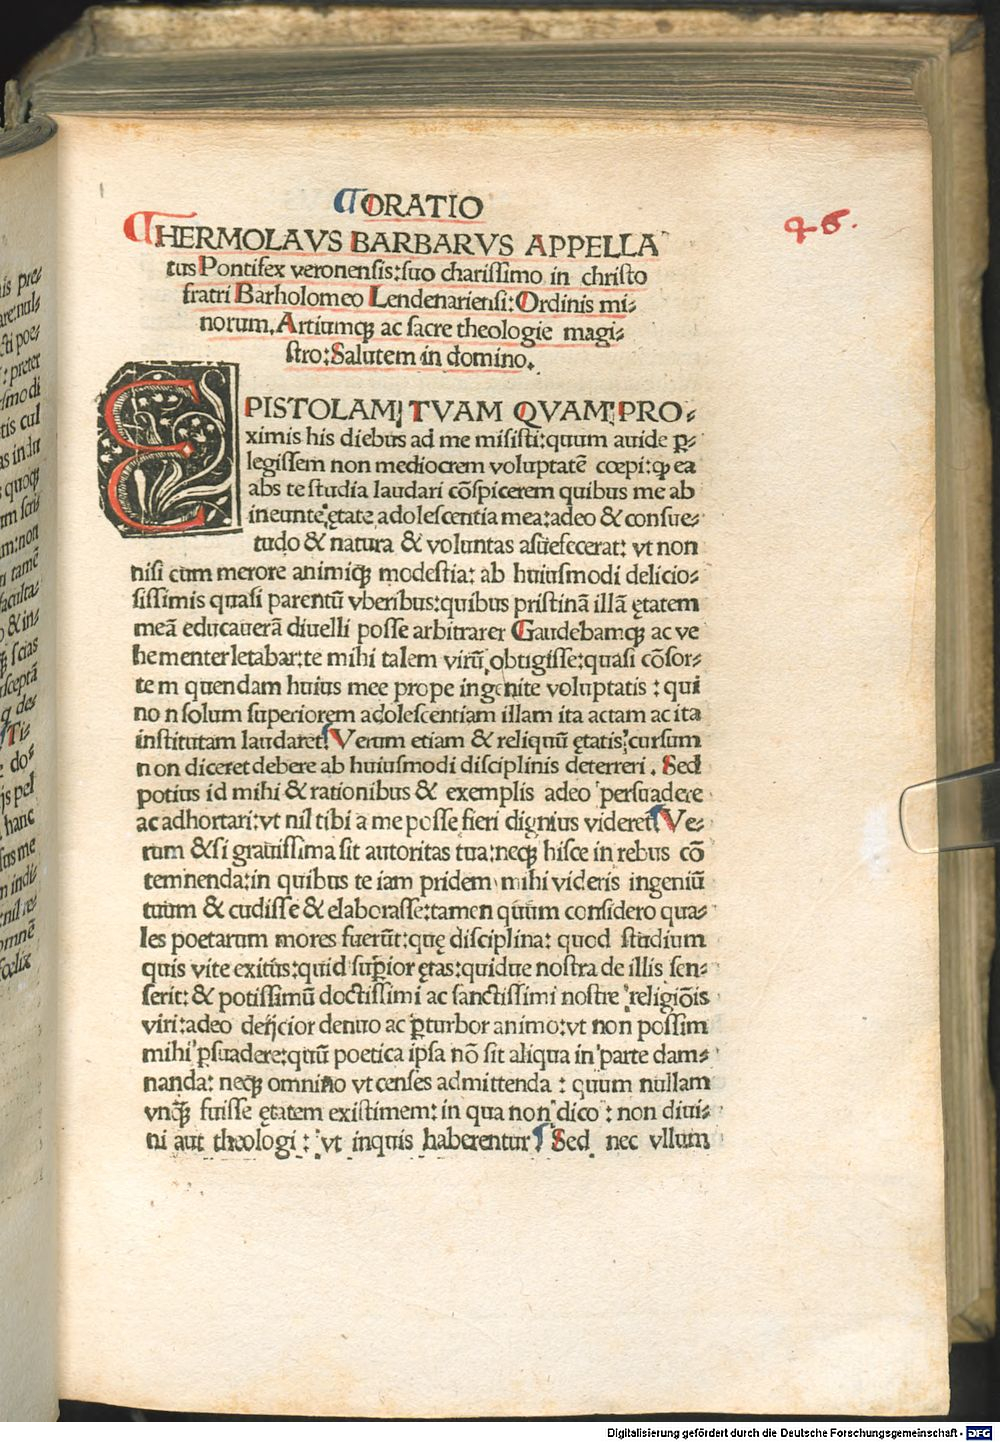 ORATIO
HERMOLAVS BARBARVS APPELLA
tus Pontifex veronensis:suo charissimo in christo
fratri Barholomeo Lendenariensi:Ordinis mi⸗
norum.Artiumqꝫ ac sacre theologie magi⸗
stro:Salutem in domino.
46.
EPISTOLAM TVAM QVAM PRO⸗
ximis his diebus ad me misisti:quum auide ꝑ⸗
legissem non mediocrem voluptatē cœpi:ꝙ ea
abs te studia laudari cōspicerem quibus me ab
ineunte ętate adolescentia mea:adeo & consue⸗
tudo & natura & voluntas asuefecerat: vt non
nisi cum merore animiqꝫ modestia: ab huiusmodi delicio⸗
sissimis quasi parentū vberibus:quibus pristinā illā ętatem
meā educauerā diuelli posse arbitrarer Gaudebamqꝫ ac ve
hementer letabar:te mihi talem virū obtigisse:quasi cōsor⸗
tem quendam huius mee prope ingenite voluptatis : qui
non solum superiorem adolescentiam illam ita actam ac ita
institutam laudaret Verum etiam & reliquū ętatis cursum
non diceret debere ab huiusmodi disciplinis deterreri . Sed
potius id mihi & rationibus & exemplis adeo persuadere
ac adhortari:vt nil tibi a me posse fieri dignius videret Ve⸗
rum & si grauissima sit autoritas tua:neqꝫ hisce in rebus cō
temnenda:in quibus te iam pridem mihi videris ingeniū
tuum & cudisse & elaborasse:tamen quum considero qua⸗
les poetarum mores fuerūt:quę disciplina: quod studium
quis vite exitus:quid suꝑior ętas:quidue nostra de illis sen⸗
serit: & potissimū doctissimi ac sanctissimi nostre religiōis
viri:adeo deijcior dentro ac ꝑturbor animo:vt non possim
mihi ꝑsuadere:quū poetica ipsa nō sit aliqua in parte dam⸗
nanda: neqꝫ omnino vt censes admittenda : quum nullam
vnqꝫ fuisse ętatem existimem: in qua non dico : non diui⸗
ni aut theologi : vt inquis haberentur Sed nec vllum
Digitalisierung gefördert durch die Deutsche Forschungsgemeinschaft - DFG